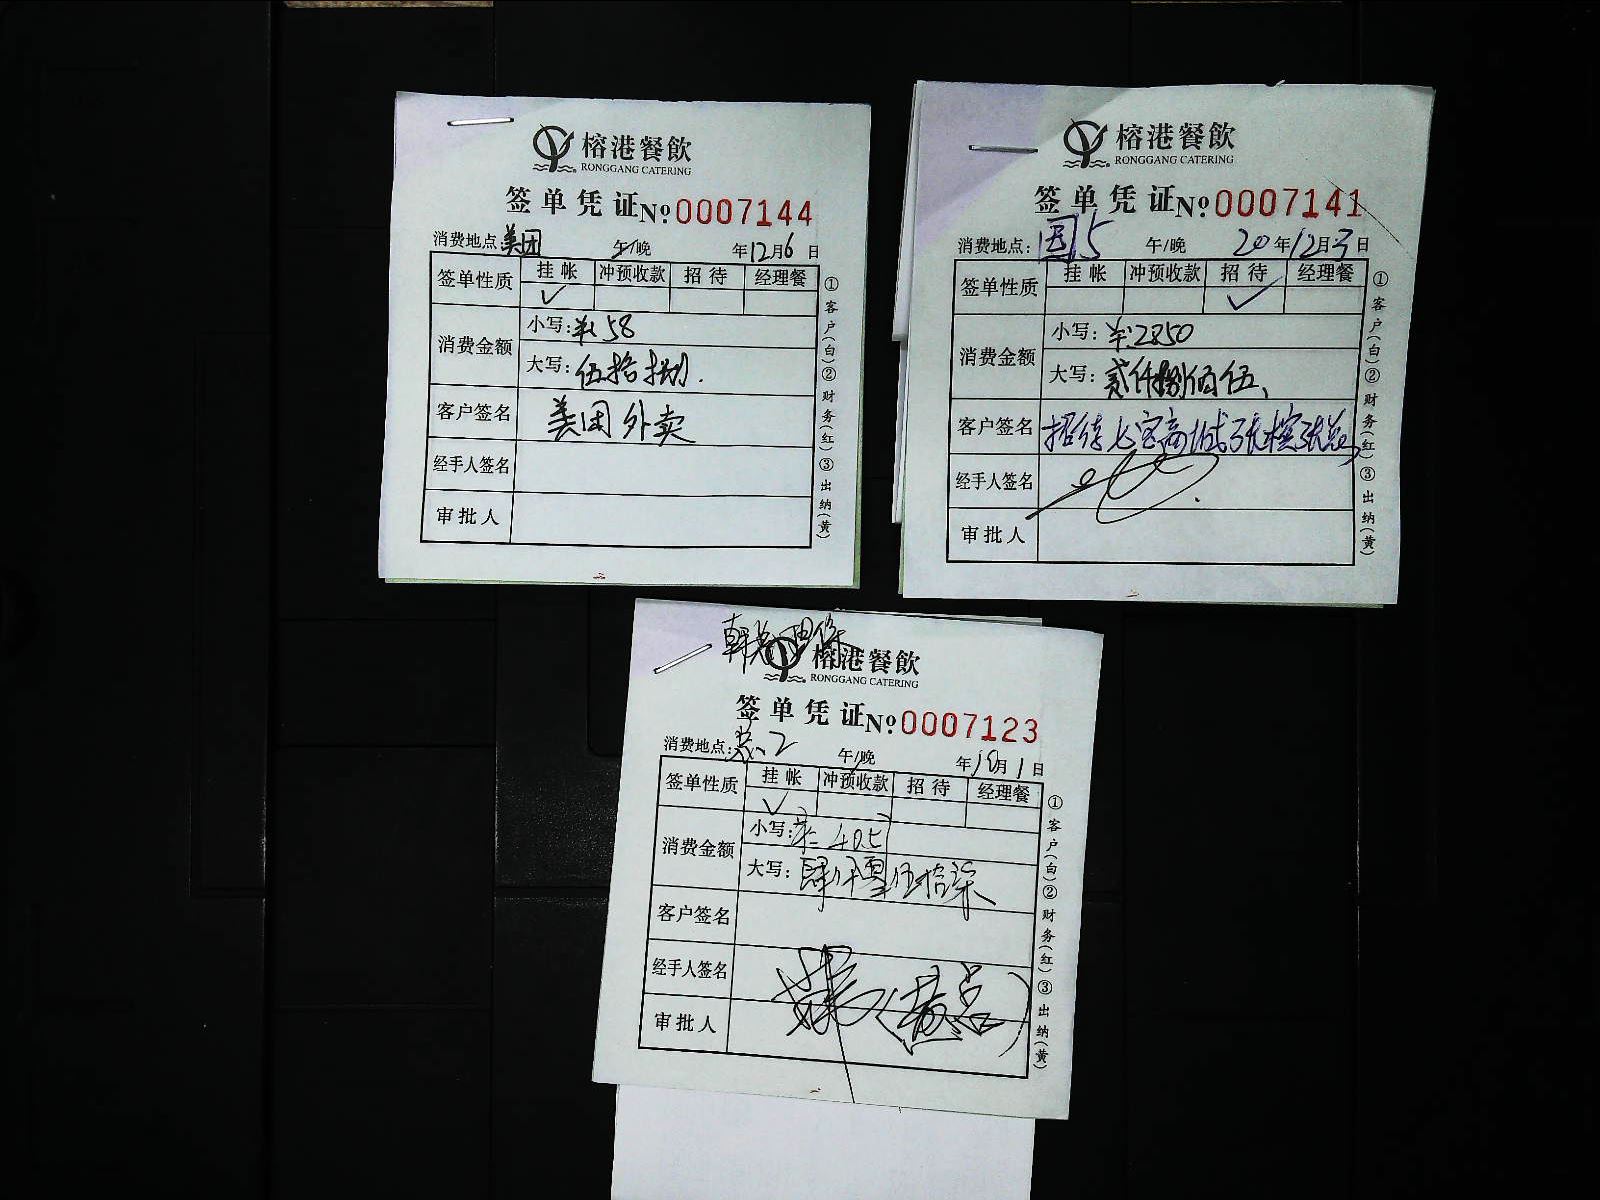 榕港餐飲
RONGGANG CATERING
签单凭证 №0007144
消费地点:美团 午/晚 年12月6日
签单性质 挂帐 冲预收款 招待 经理餐
✓
消费金额 小写:¥:58
大写:伍拾捌.
客户签名 美团外卖
经手人签名
审批人
①客户(白)②财务(红)③出纳(黄)
榕港餐飲
RONGGANG CATERING
签单凭证 №0007141
消费地点:国5 午/晚 20年12月3日
签单性质 挂帐 冲预收款 招待 经理餐
✓
消费金额 小写:¥:2850
大写:贰仟捌佰伍
客户签名 招待七宝商城张
经手人签名
审批人
①客户(白)②财务(红)③出纳(黄)
榕港餐飲
RONGGANG CATERING
签单凭证 №0007123
消费地点: 2 午/晚 年 月1日
签单性质 挂帐 冲预收款 招待 经理餐
✓
消费金额 小写:¥:4057
大写:肆仟零伍拾柒
客户签名
经手人签名
审批人
①客户(白)②财务(红)③出纳(黄)